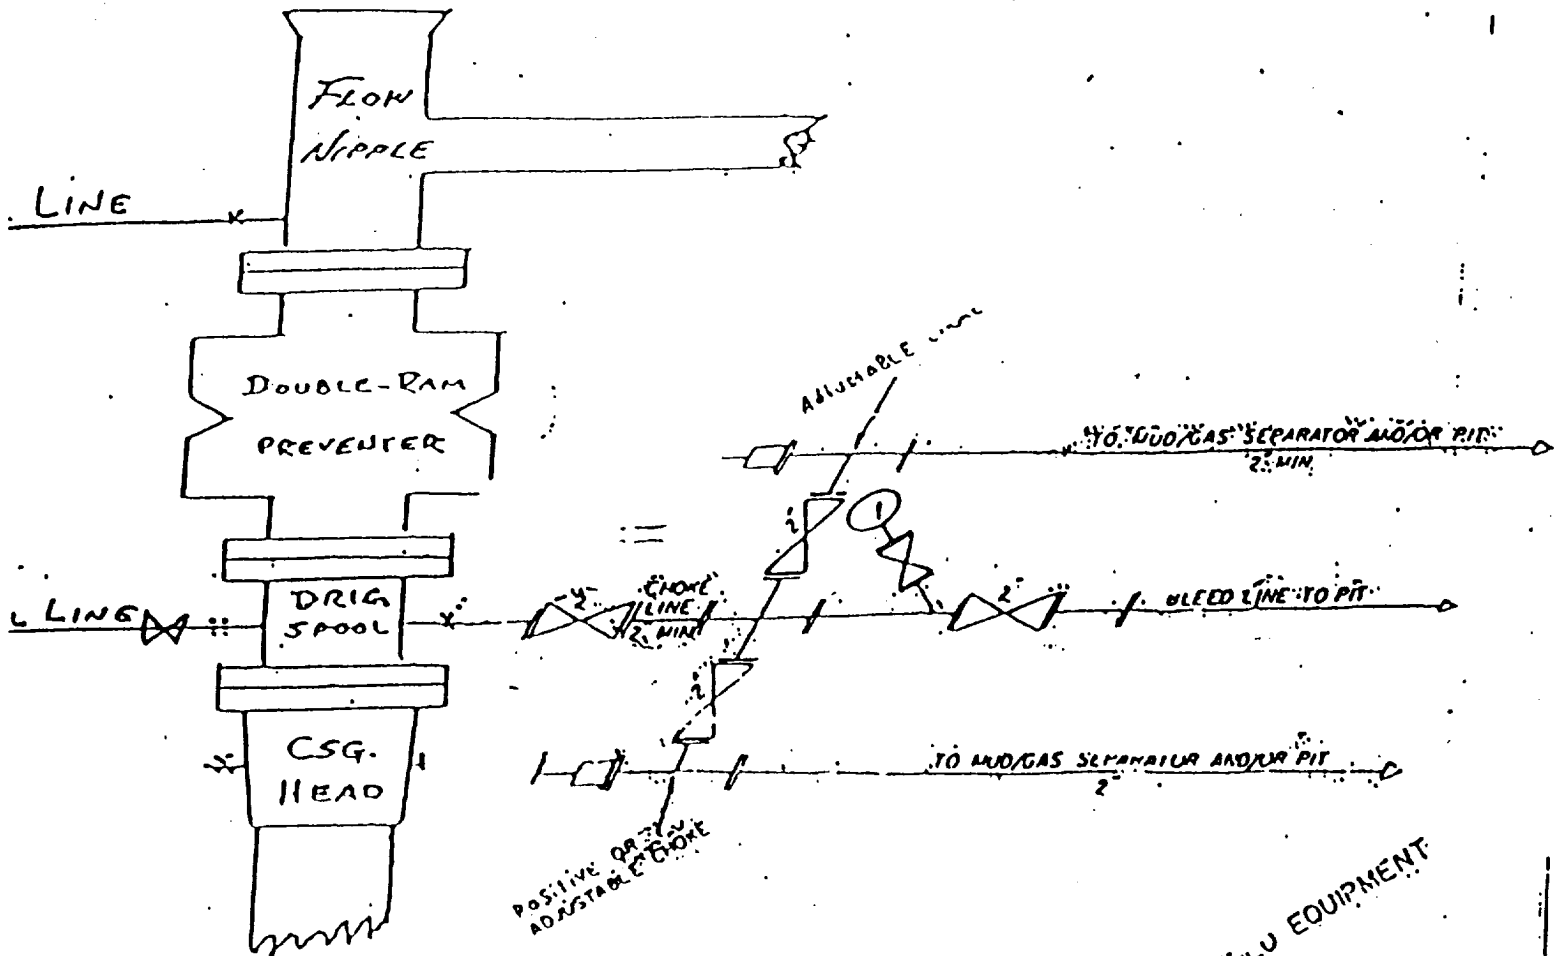 FLOW
NIPPLE
LINE
DOUBLE-RAM
PREVENTER
ADJUSTABLE
TO MUD/GAS SEPARATOR AND/OR PIT
2" MIN
2"
1
LINE
DRLG
SPOOL
2"
CHOKE
LINE
2" MIN
2"
BLEED LINE TO PIT
2"
CSG.
HEAD
TO MUD/GAS SEPARATOR AND/OR PIT
2"
POSITIVE OR
ADJUSTABLE CHOKE
EQUIPMENT